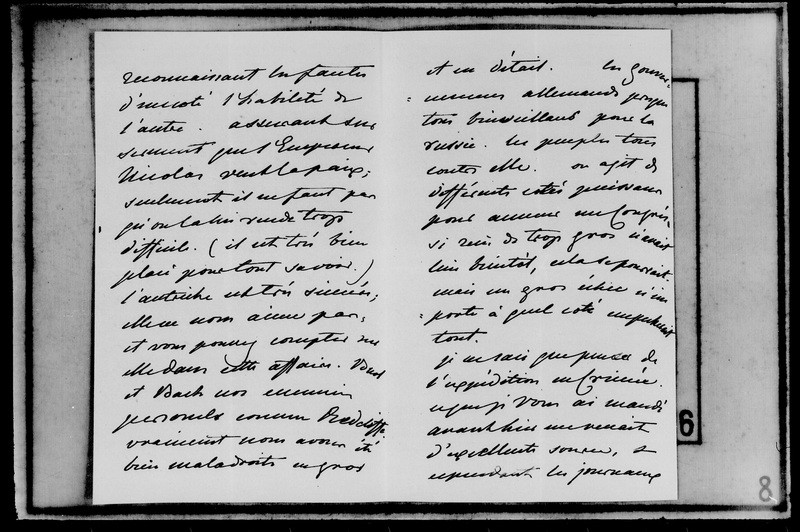 reconnaissant les fautes
d'un coté l'habileté de
l'autre. assurant sur
serment que l'Empereur
Nicolas veut la paix;
seulement il ne faut pas
qu'on la lui rende trop
difficile. (il est très bien
placé pour tout savoir.)
l'autriche est très sincère;
elle ne nous aime pas.
et vous pouvez compter sur
elle dans cette affaire. Buol
et Bach nos ennemis
personels comme Redcliffe
vraiment nous avons été
bien maladroits en gros
et en détail. les gouver-
nemens allemands presque
tous bienveillans pour la
russie. les peuples tous
contre elle. on agit de
différents cotés puissans
pour amener un Congrès,
si rien de trop gros n'avait
lieu bientôt, cela se pourrait
mais un gros échec n'im
porte à quel coté empecherait
tout.
je ne sais que penser de
l'expédition en Crimée.
ce que je vous ai mandé
avant hier me venait
d'excellente source, et
cependant les journaux
6
8